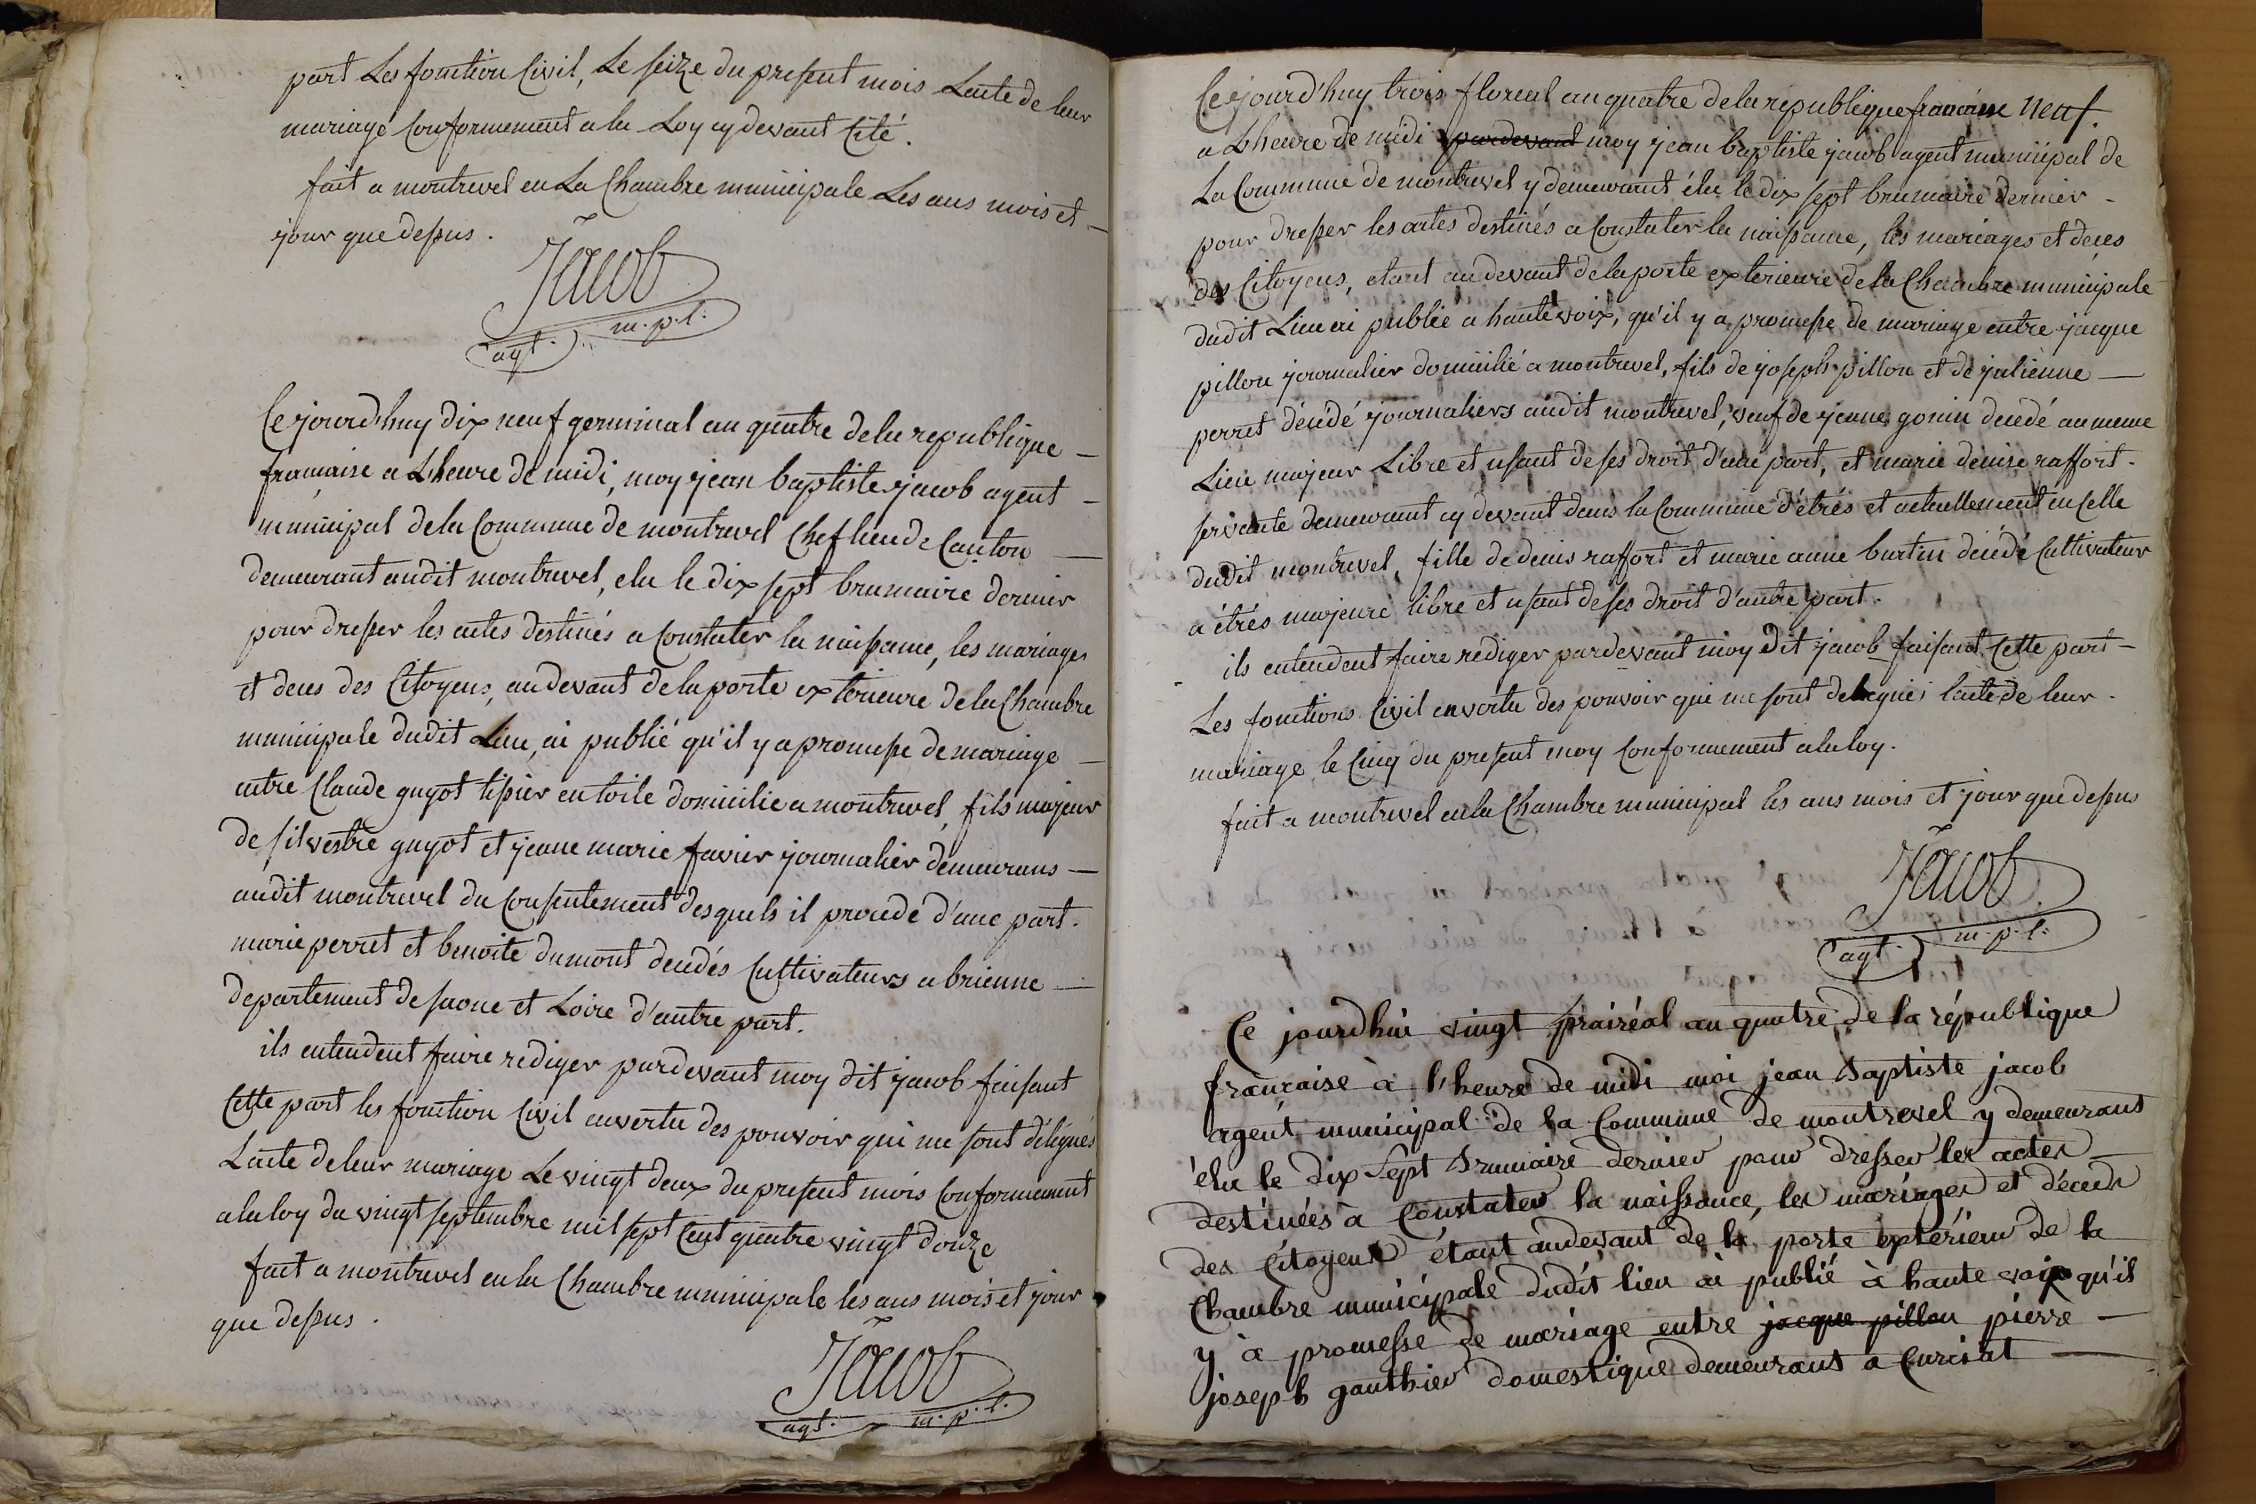 part Les fonction Civil, Le seize du present mois Lacte de leur
mariage Conformement a la Loy cy devant Cité.
fait a montrevel en La Chambre municipale Les ans mois et
jour que dessus.
Jacob
agt. m.p.l.
Ce jourd'huy dix neuf germinal an quatre de la republique
française a Lheure de midi, moy jean baptiste jacob agent
municipal de la Commune de montrevel Chef lieu de Canton
demeurant audit montrevel, elu le dix sept brumaire dernier
pour dresser les actes destinés a Constater la naissance, les mariages
et deces des Citoyens, au devant de la porte exterieure de la Chambre
municipale dudit Lieu, ai publié qu'il y a promesse de mariage
entre Claude guyot tissier en toile domicilie a montrevel, fils majeur
de silvestre guyot et jeane marie favier journalier demeurans
audit montrevel du Consentement desquels il procede d'une part.
marie perret et benoite dumont decedés Cultivateurs a brienne
departement de saone et Loire d'autre part.
ils entendent faire rediger pardevant moy dit jacob faisant
Cette part les fonction Civil en vertu des pouvoir qui me sont délégués
Lacte de leur mariage Le vingt deux du present mois Conformement
a la loy du vingt septembre mil sept Cent quatre vingt douze
fait a montrevel en la Chambre municipale les ans mois et jour
que dessus.
Jacob
agt. m.p.l.
neuf.
Ce jourd'huy trois floreal an quatre de la republique francaise
a Lheure de midi pardevant moy jean baptiste jacob agent municipal de
La Commune de montrevel y demeurant élu le dix sept brumaire dernier
pour dresser les actes destinés a Constater la naissance, les mariages et deces
des Citoyens, etant au devant de la porte exterieure de la Chambre municipale
dudit Lieu ai publié a haute voix, qu'il y a promesse de mariage entre jacque
pillon journalier domicilié a montrevel, fils de joseph pillon et de julienne
perret décédé journaliers audit montrevel, veuf de jeane gonin decedé au meme
Lieu majeur Libre et usant de ses droit d'une part, et marie denise raffort
servante demeurant cy devant dans la Commune d'étrés et actuellement en Celle
dudit montrevel, fille de denis raffort et marie anne burtin décédé Cultivateur
a étrés majeure libre et usant de ses droit d'autre part.
ils entendent faire rediger pardevant moy dit jacob faisant Cette part
Les fonctions Civil en vertu des pouvoir qui me sont delegués lacte de leur
mariage le Cinq du present moy Conformement a la loy.
fait a montrevel en la Chambre municipal les ans mois et jour que dessus
Jacob
agt. m.p.l.
Ce jourdhui vingt prairéal an quatre de la république
française à l'heure de midi moi jean Baptiste jacob
agent municipal de la Commune de montrevel y demeurant
élu le dix Sept Brumaire dernier pour dresser les actes
destinées à Constater la naissance, les mariages et décéds
des Citoyens étant audevant de la porte extérieur de la
Chambre municipale dudit lieu ai publié à haute voix qu'il
y à promesse de mariage entre jacque pillon pierre
joseph gauthier domestique demeurant a Curciat